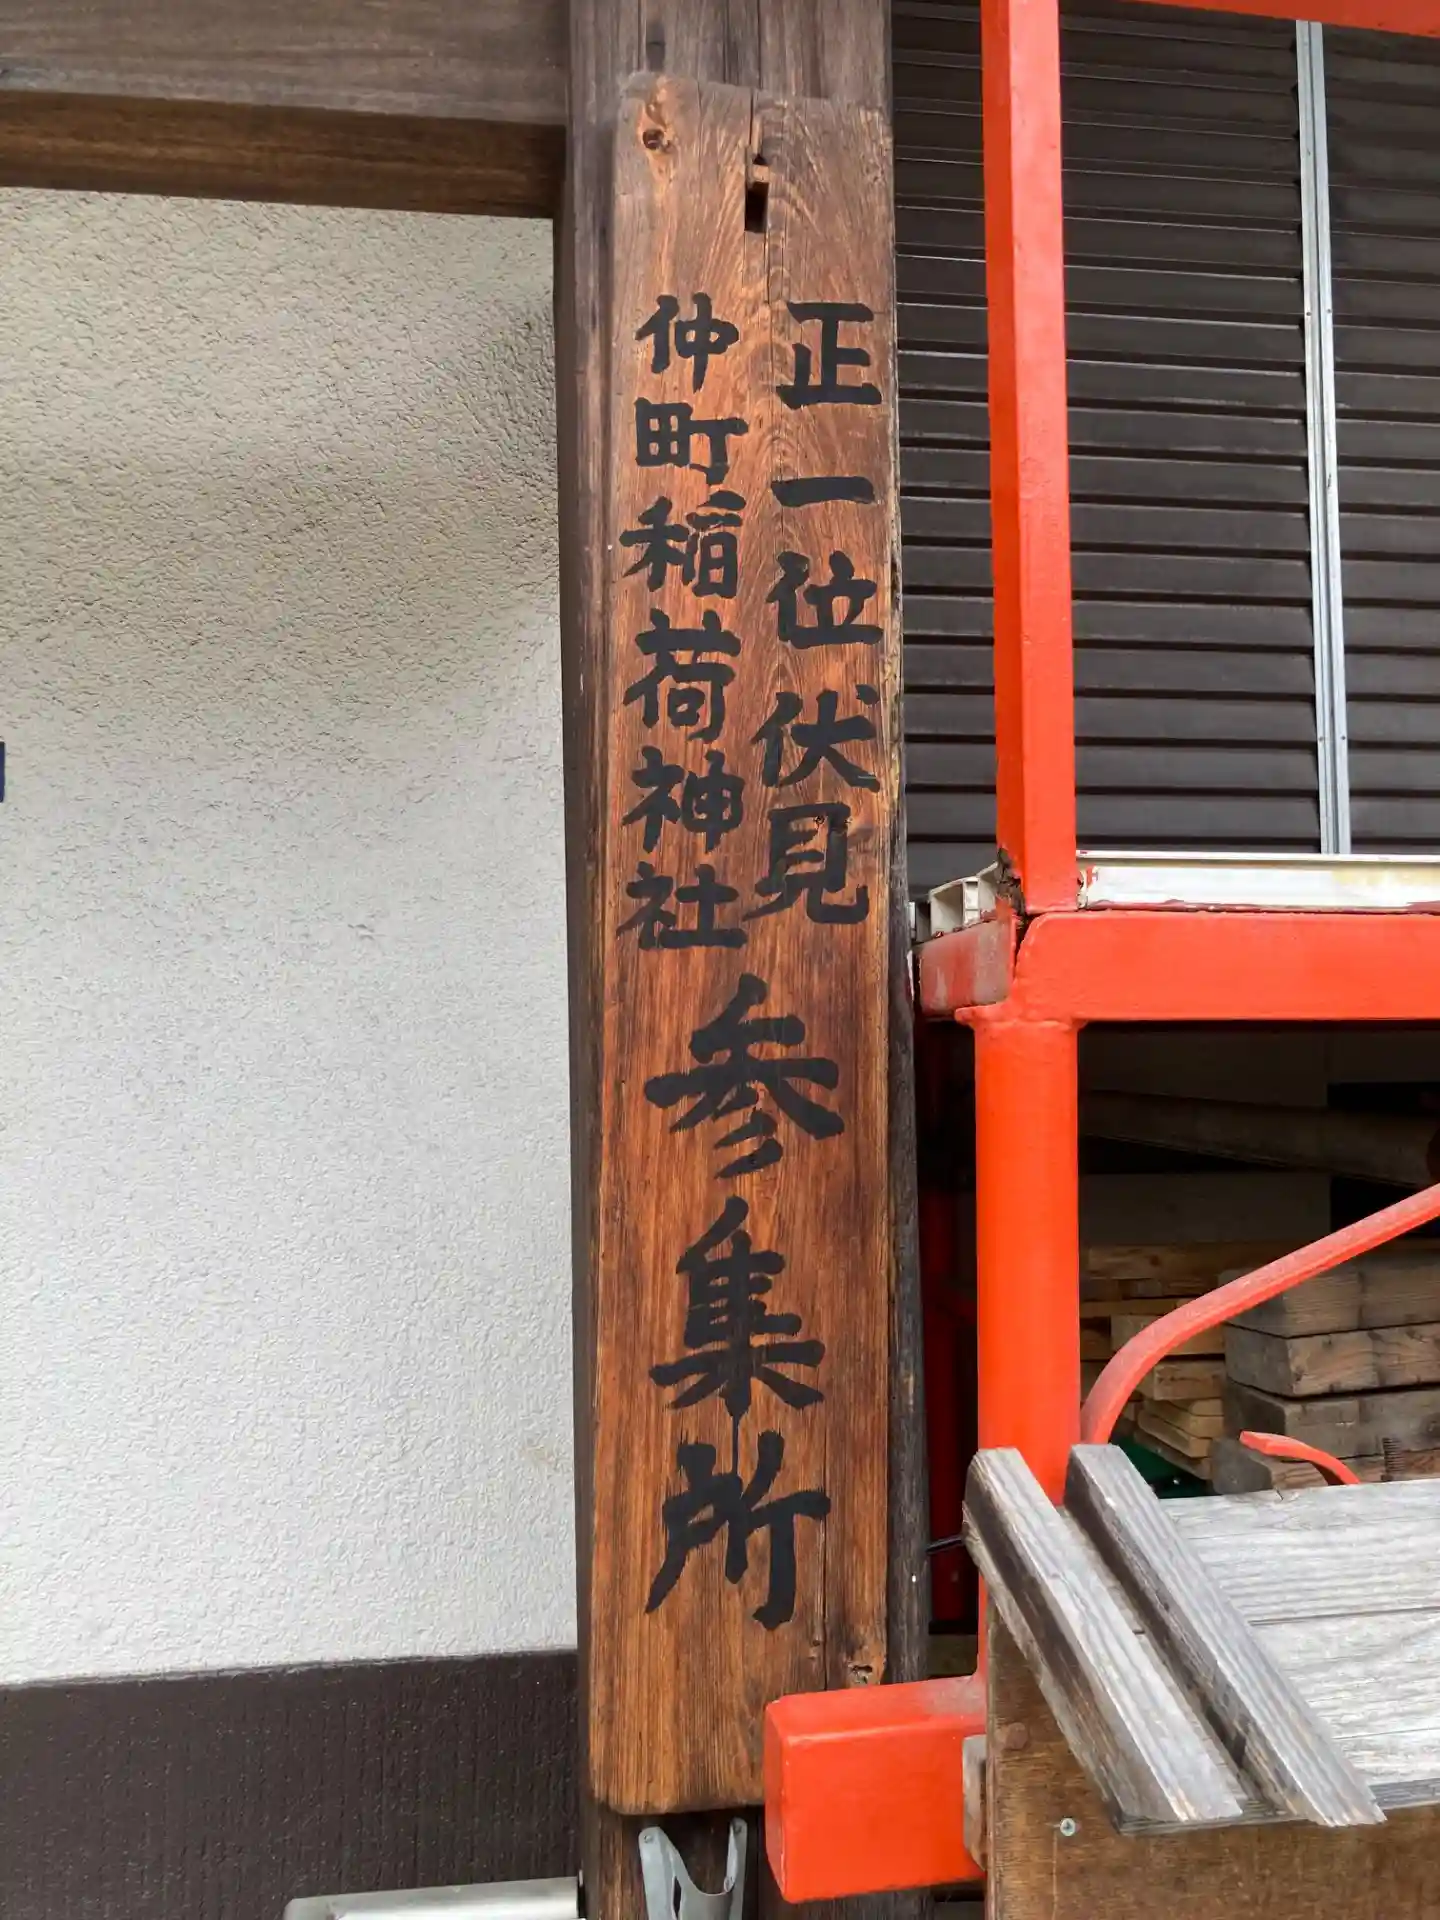 正一位伏見
仲町稲荷神社
参集所